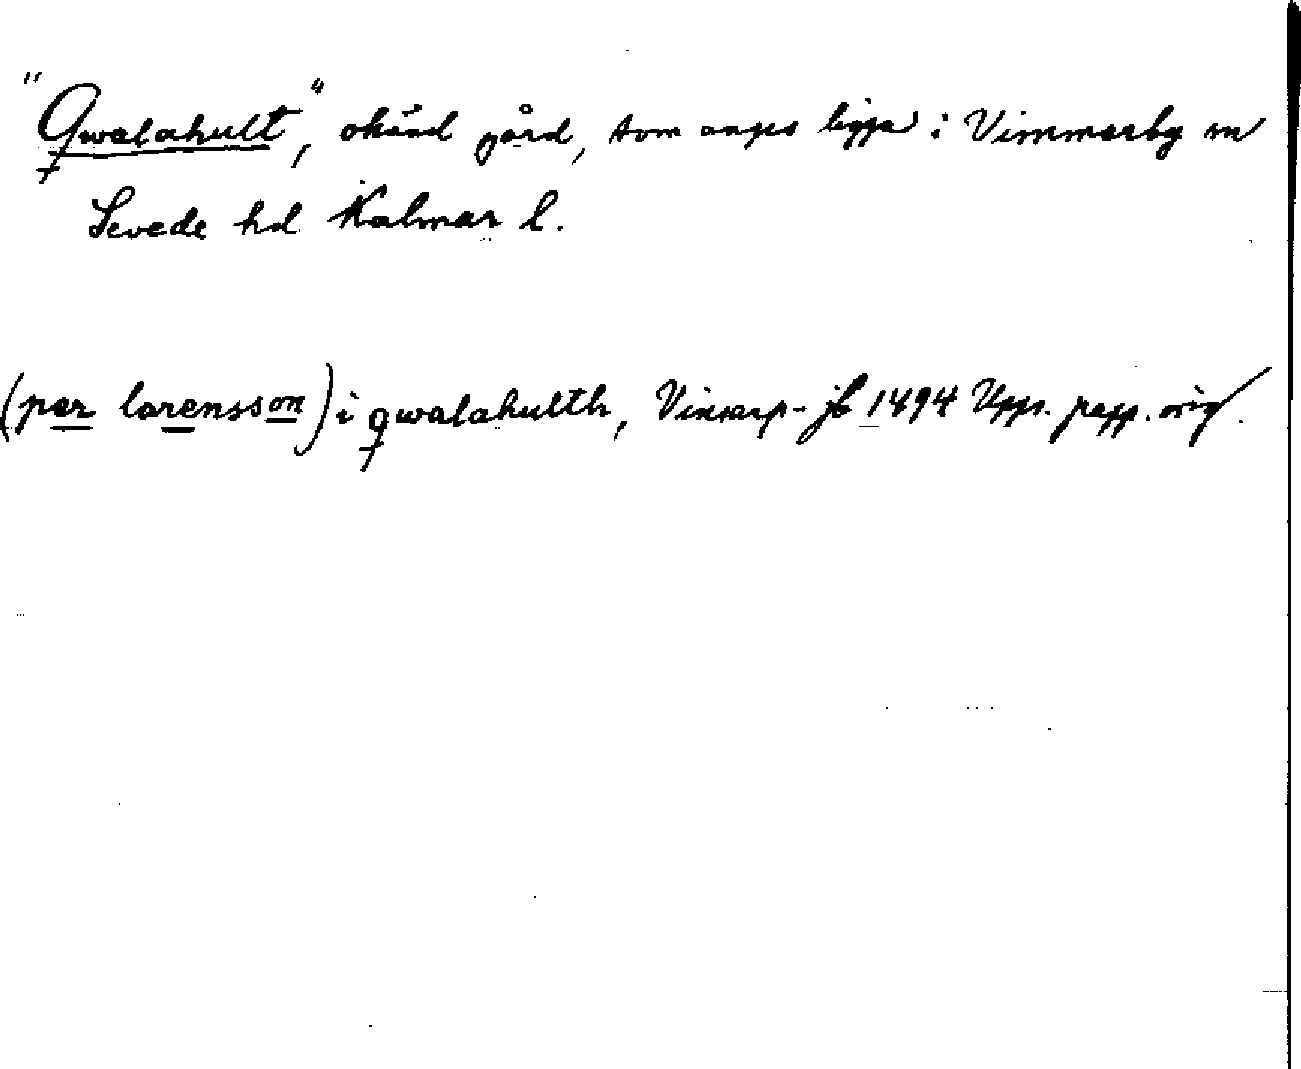 "Qwalahult", okänd gård, som anges ligga i Vimmerby sn
Sevede hd Kalmar l.
(per larensson) i qwalahulth, Vinsarp-jb 1494 Upps. papp. orig.